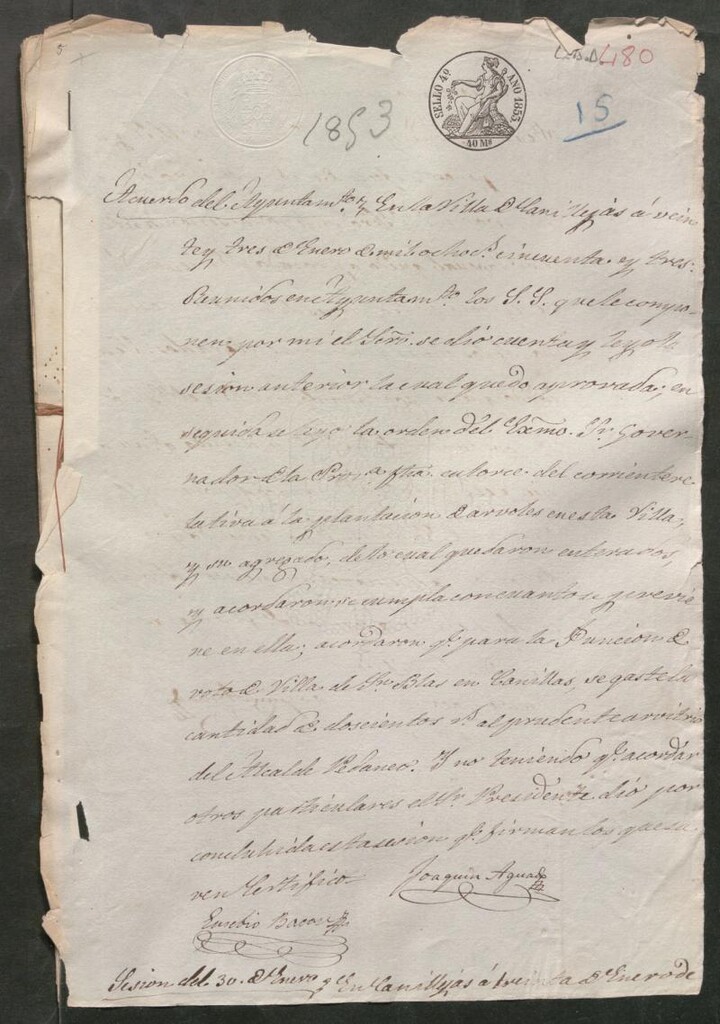 5
480
SELLO 4º AÑO 1853.
40 Ms
1853
15
Acuerdo del Ayuntamto. En la Villa de Canillejas á vein
te y tres de Enero de mil ochocs. cincuenta y tres.
Reunidos en Ayuntamto. los S. S. que le compo-
nen por mi el Srio. se dió cuenta y leyo la
sesion anterior la cual quedo aprovada; en
seguida se leyo la orden del Exmo. Sr. Gover-
nador de la Prova. fha. catorce del corriente re
lativa á la plantacion de arvoles en esta Villa,
y su agregado, de lo cual quedaron enterados,
y acordaron se cumpla con cuanto se previe
ne en ella; acordaron qe. para la Funcion de
voto de Villa de Sn. Blas en Canillas, se gaste la
cantidad de doscientos rs. al prudente arvitrio
del Alcalde Pedaneo. Y no teniendo qe. acordar
otros particulares el Sr. Presidente dió por
concluhida esta sesion qe. firman los que sa
ven Certifico
Joaquin Aguado
Eusebio Bacos
Sesion del 30 de Enero En Canillejas á treinta de Enero de